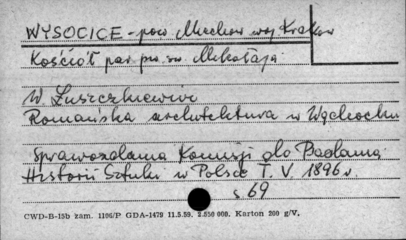 WYSOCICE - pow Miechów woj Kraków
Kościół par. pw. sw Mikołaja
W. Łuszczkiewicz
Romańska architektura w Wąchocku
Sprawozdania Komisji do Badania
Historii Sztuki w Polsce T. V. 1896 r.
s 69
CWD-B-15b zam. 1106/P GDA-1479 11.5.59. 2.850 000. Karton 200 g/V.